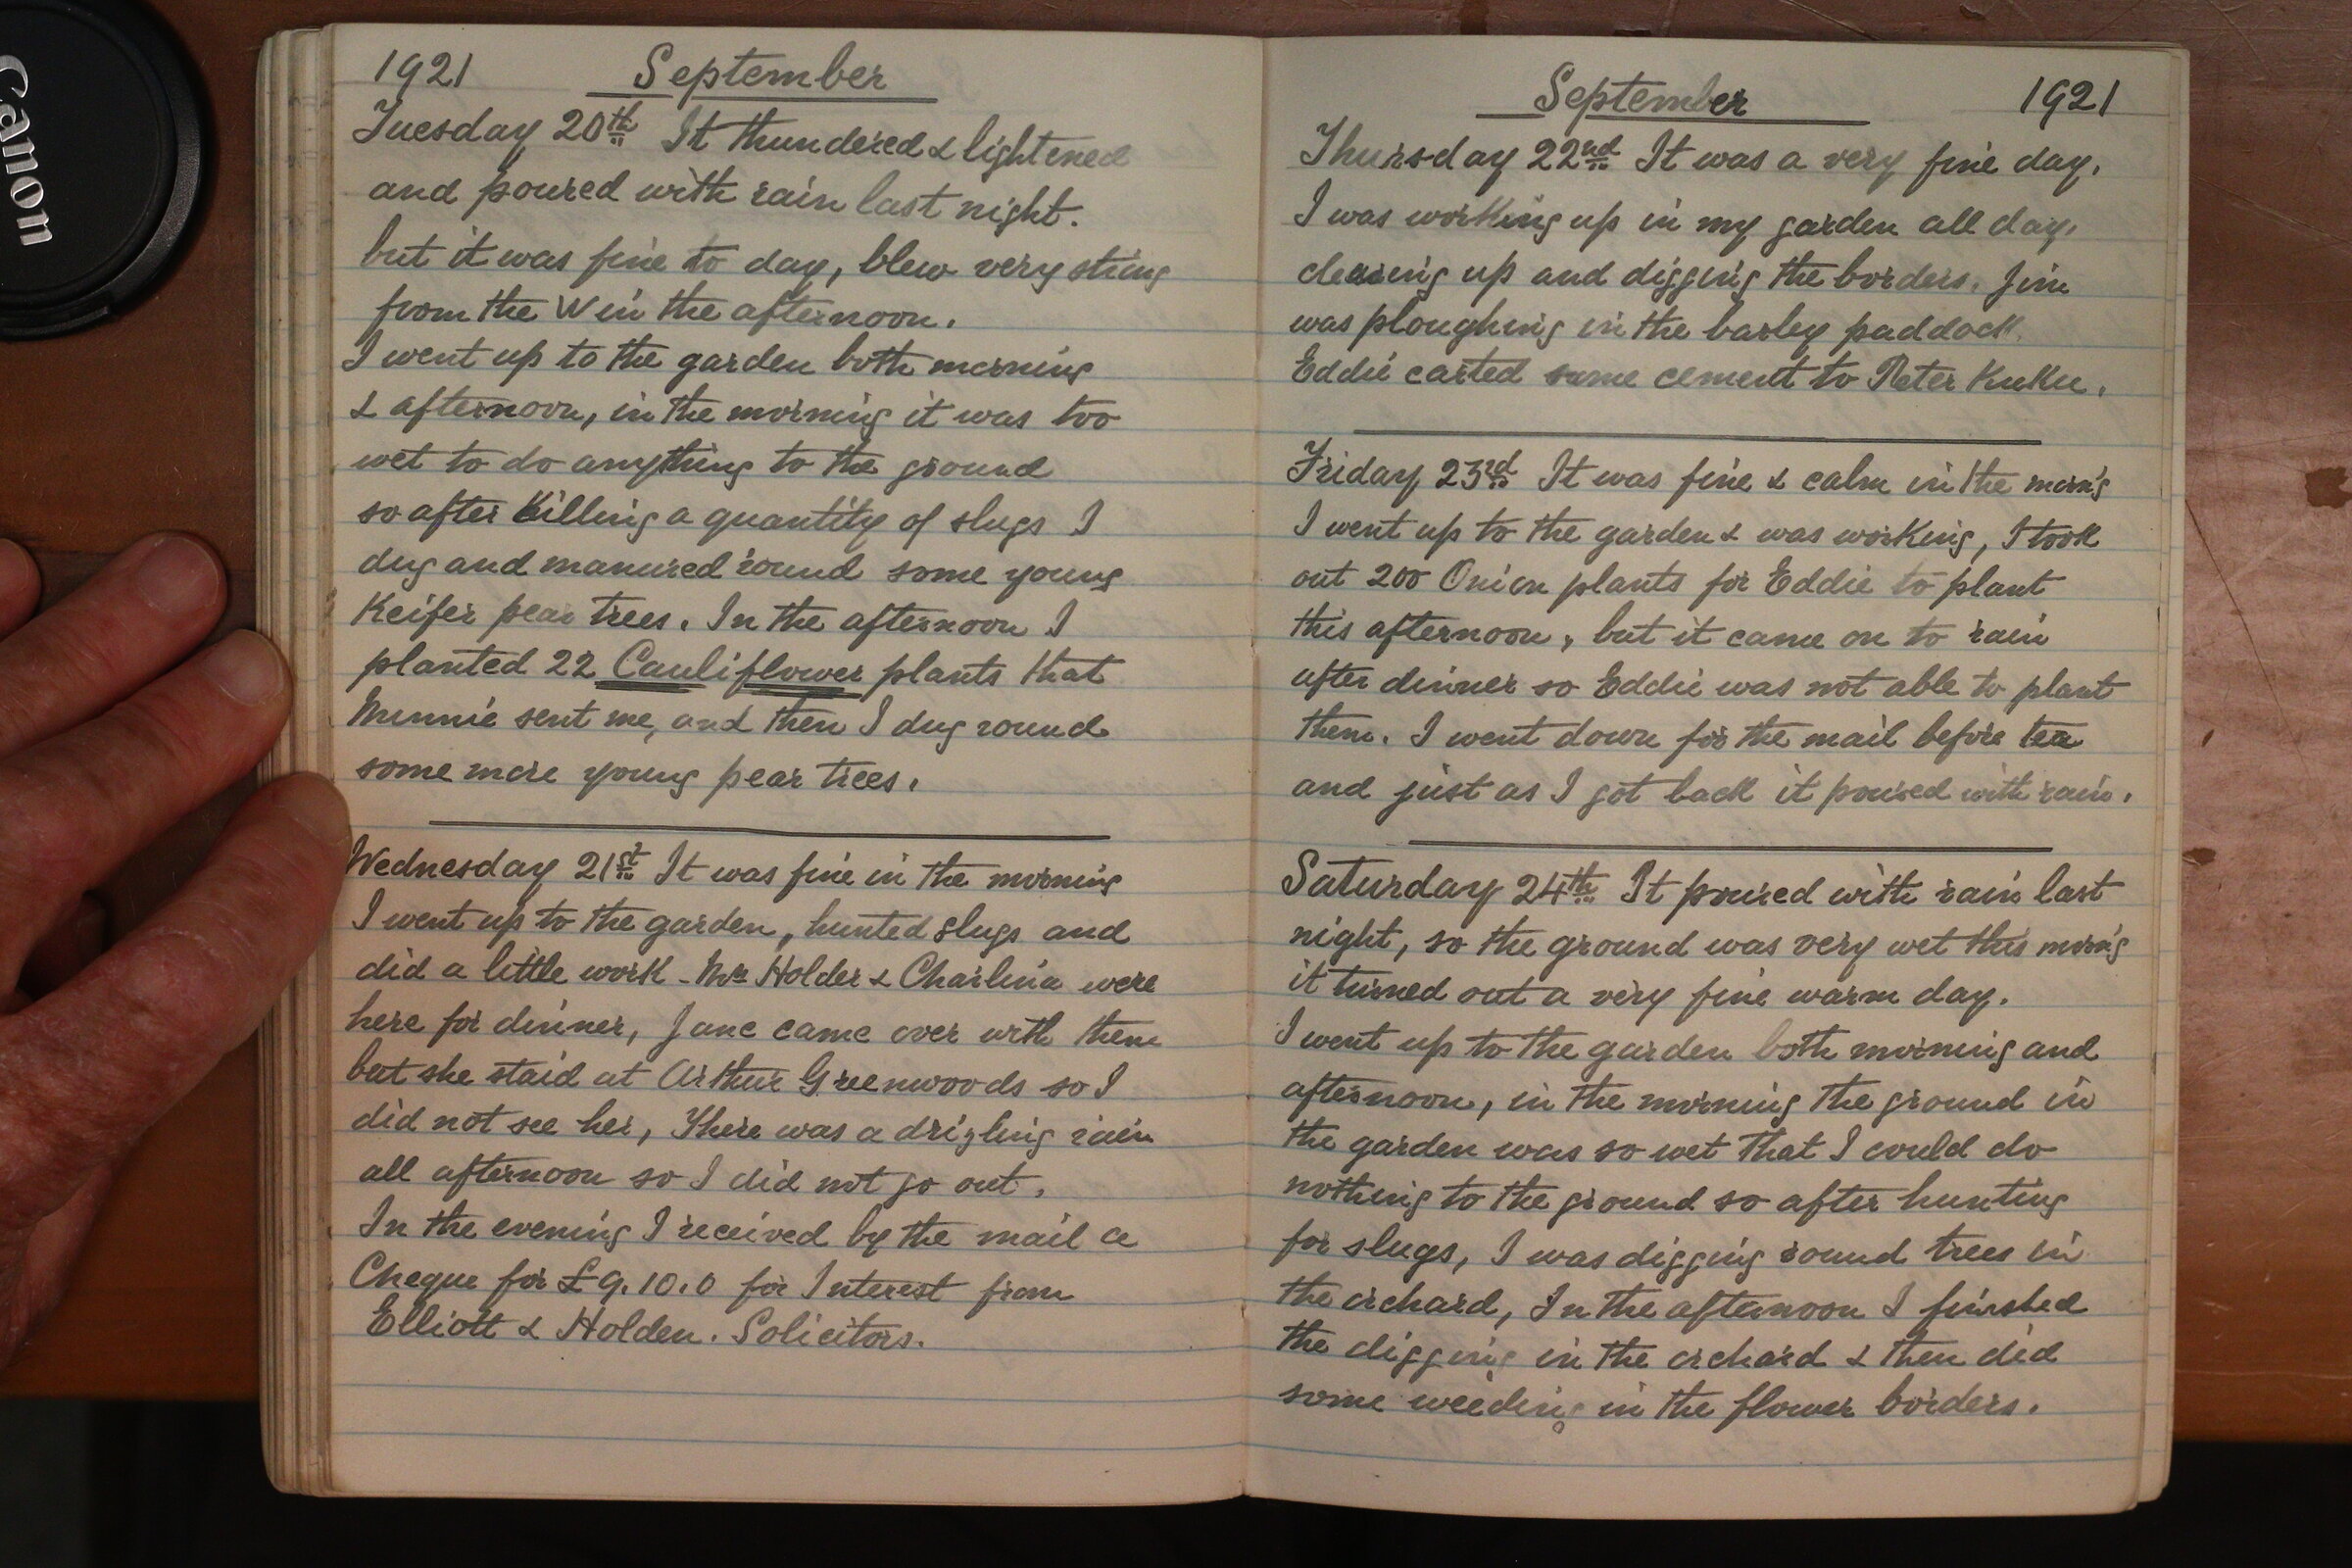 Canon
1921 September
Tuesday 20th It thundered & lightened
and poured with rain last night.
but it was fine to day, blew very strong
from the W in the afternoon.
I went up to the garden both morning
& afternoon, in the morning it was too
wet to do anything to the ground
so after killing a quantity of slugs I
dug and manured round some young
Keifer pear trees. In the afternoon I
planted 22 Cauliflower plants that
Minnie sent me, and then I dug round
some more young pear trees.
Wednesday 21st It was fine in the morning
I went up to the garden, hunted slugs and
did a little work - Mrs Holder & Charlina were
here for dinner, Jane came over with them
but she staid at Arthur Greenwoods so I
did not see her, There was a drizling rain
all afternoon so I did not go out.
In the evening I received by the mail a
Cheque for £9.10.0 for Interest from
Elliott & Holden. Solicitors.
September 1921
Thursday 22nd It was a very fine day.
I was working up in my garden all day.
clearing up and digging the borders. Jim
was ploughing in the barley paddock.
Eddie carted some cement to Peter Kuku.
Friday 23rd It was fine & calm in the morn'g
I went up to the garden & was working, I took
out 200 Onion plants for Eddie to plant
this afternoon, but it came on to rain
after dinner so Eddie was not able to plant
them. I went down for the mail before tea
and just as I got back it poured with rain.
Saturday 24th It poured with rain last
night, so the ground was very wet this morn'g
it turned out a very fine warm day.
I went up to the garden both morning and
afternoon, in the morning the ground in
the garden was so wet that I could do
nothing to the ground so after hunting
for slugs, I was digging round trees in
the orchard, In the afternoon I finished
the digging in the orchard & then did
some weeding in the flower borders.